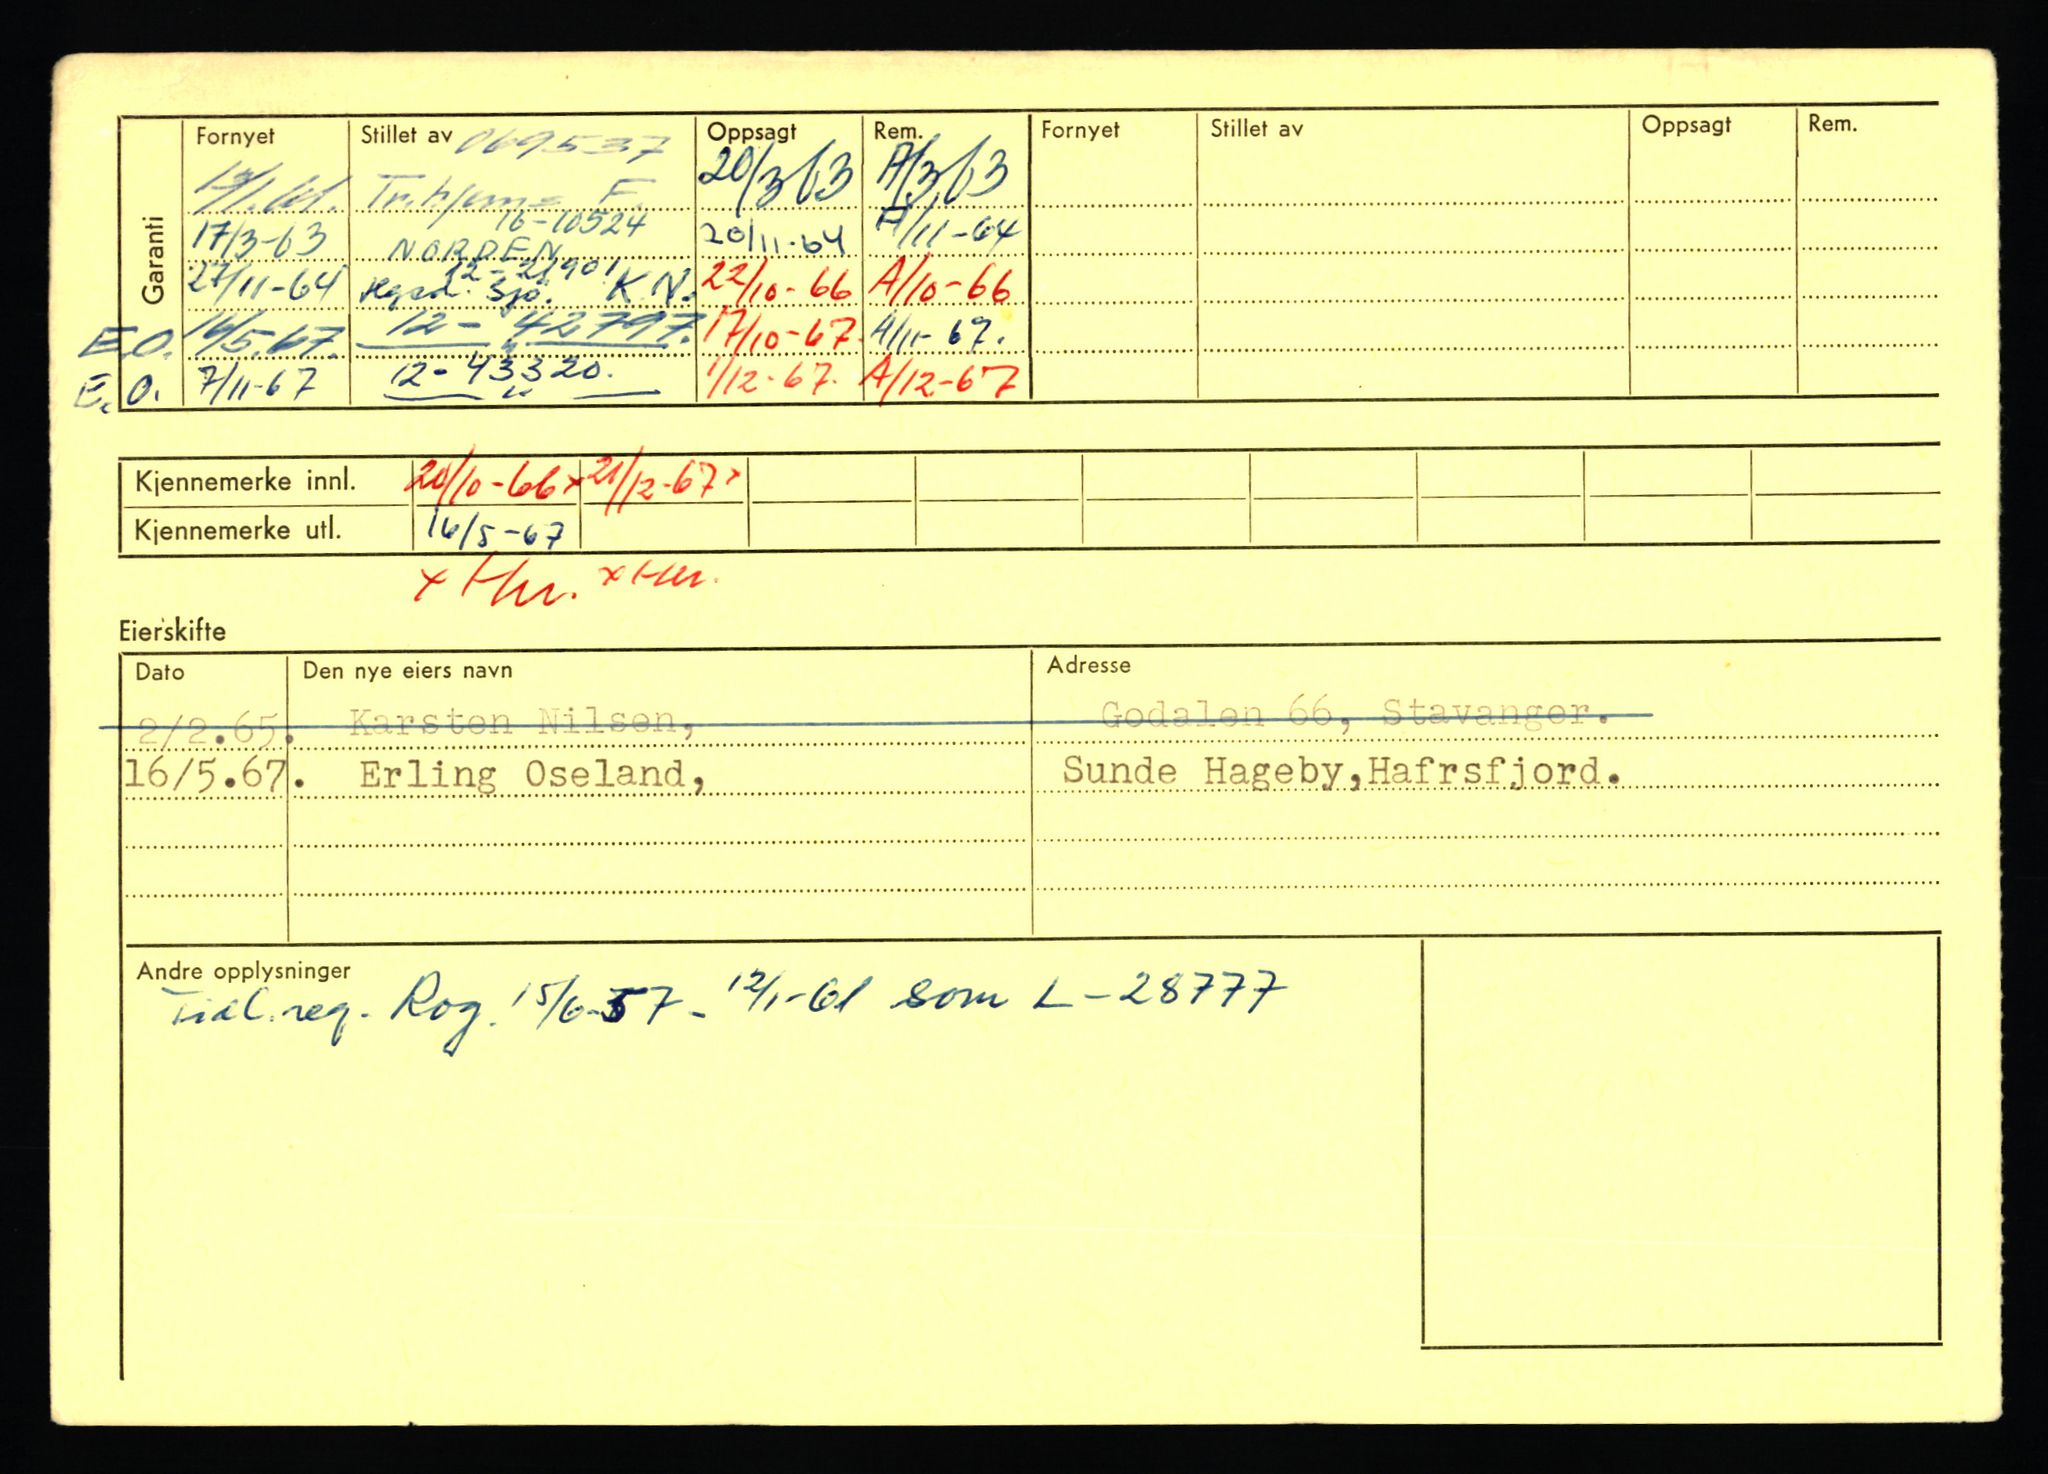 Garanti
Fornyet Stillet av 069537 Oppsagt Rem. Fornyet Stillet av Oppsagt Rem.
F. 20/3 63 A/3 63
17/3-63 16-10524 NORDEN 20/11-64 A/11-64
27/11-64 12-21901 Sjø. K.N. 22/10-66 A/10-66
E.O. 16/5.67. 12-42797. 17/10-67. A/11-67.
E.O. 7/11-67 12-43320. " 1/12-67. A/12-67
Kjennemerke innl. 20/10-66x 21/12-67x
Kjennemerke utl. 16/5-67
Eierskifte
Dato Den nye eiers navn Adresse
2/2.65. Karsten Nilsen, Godalen 66, Stavanger.
16/5.67. Erling Oseland, Sunde Hageby,Hafrsfjord.
Andre opplysninger
Tidl. reg. Rog. 15/6-57 - 12/1-61 som L-28777